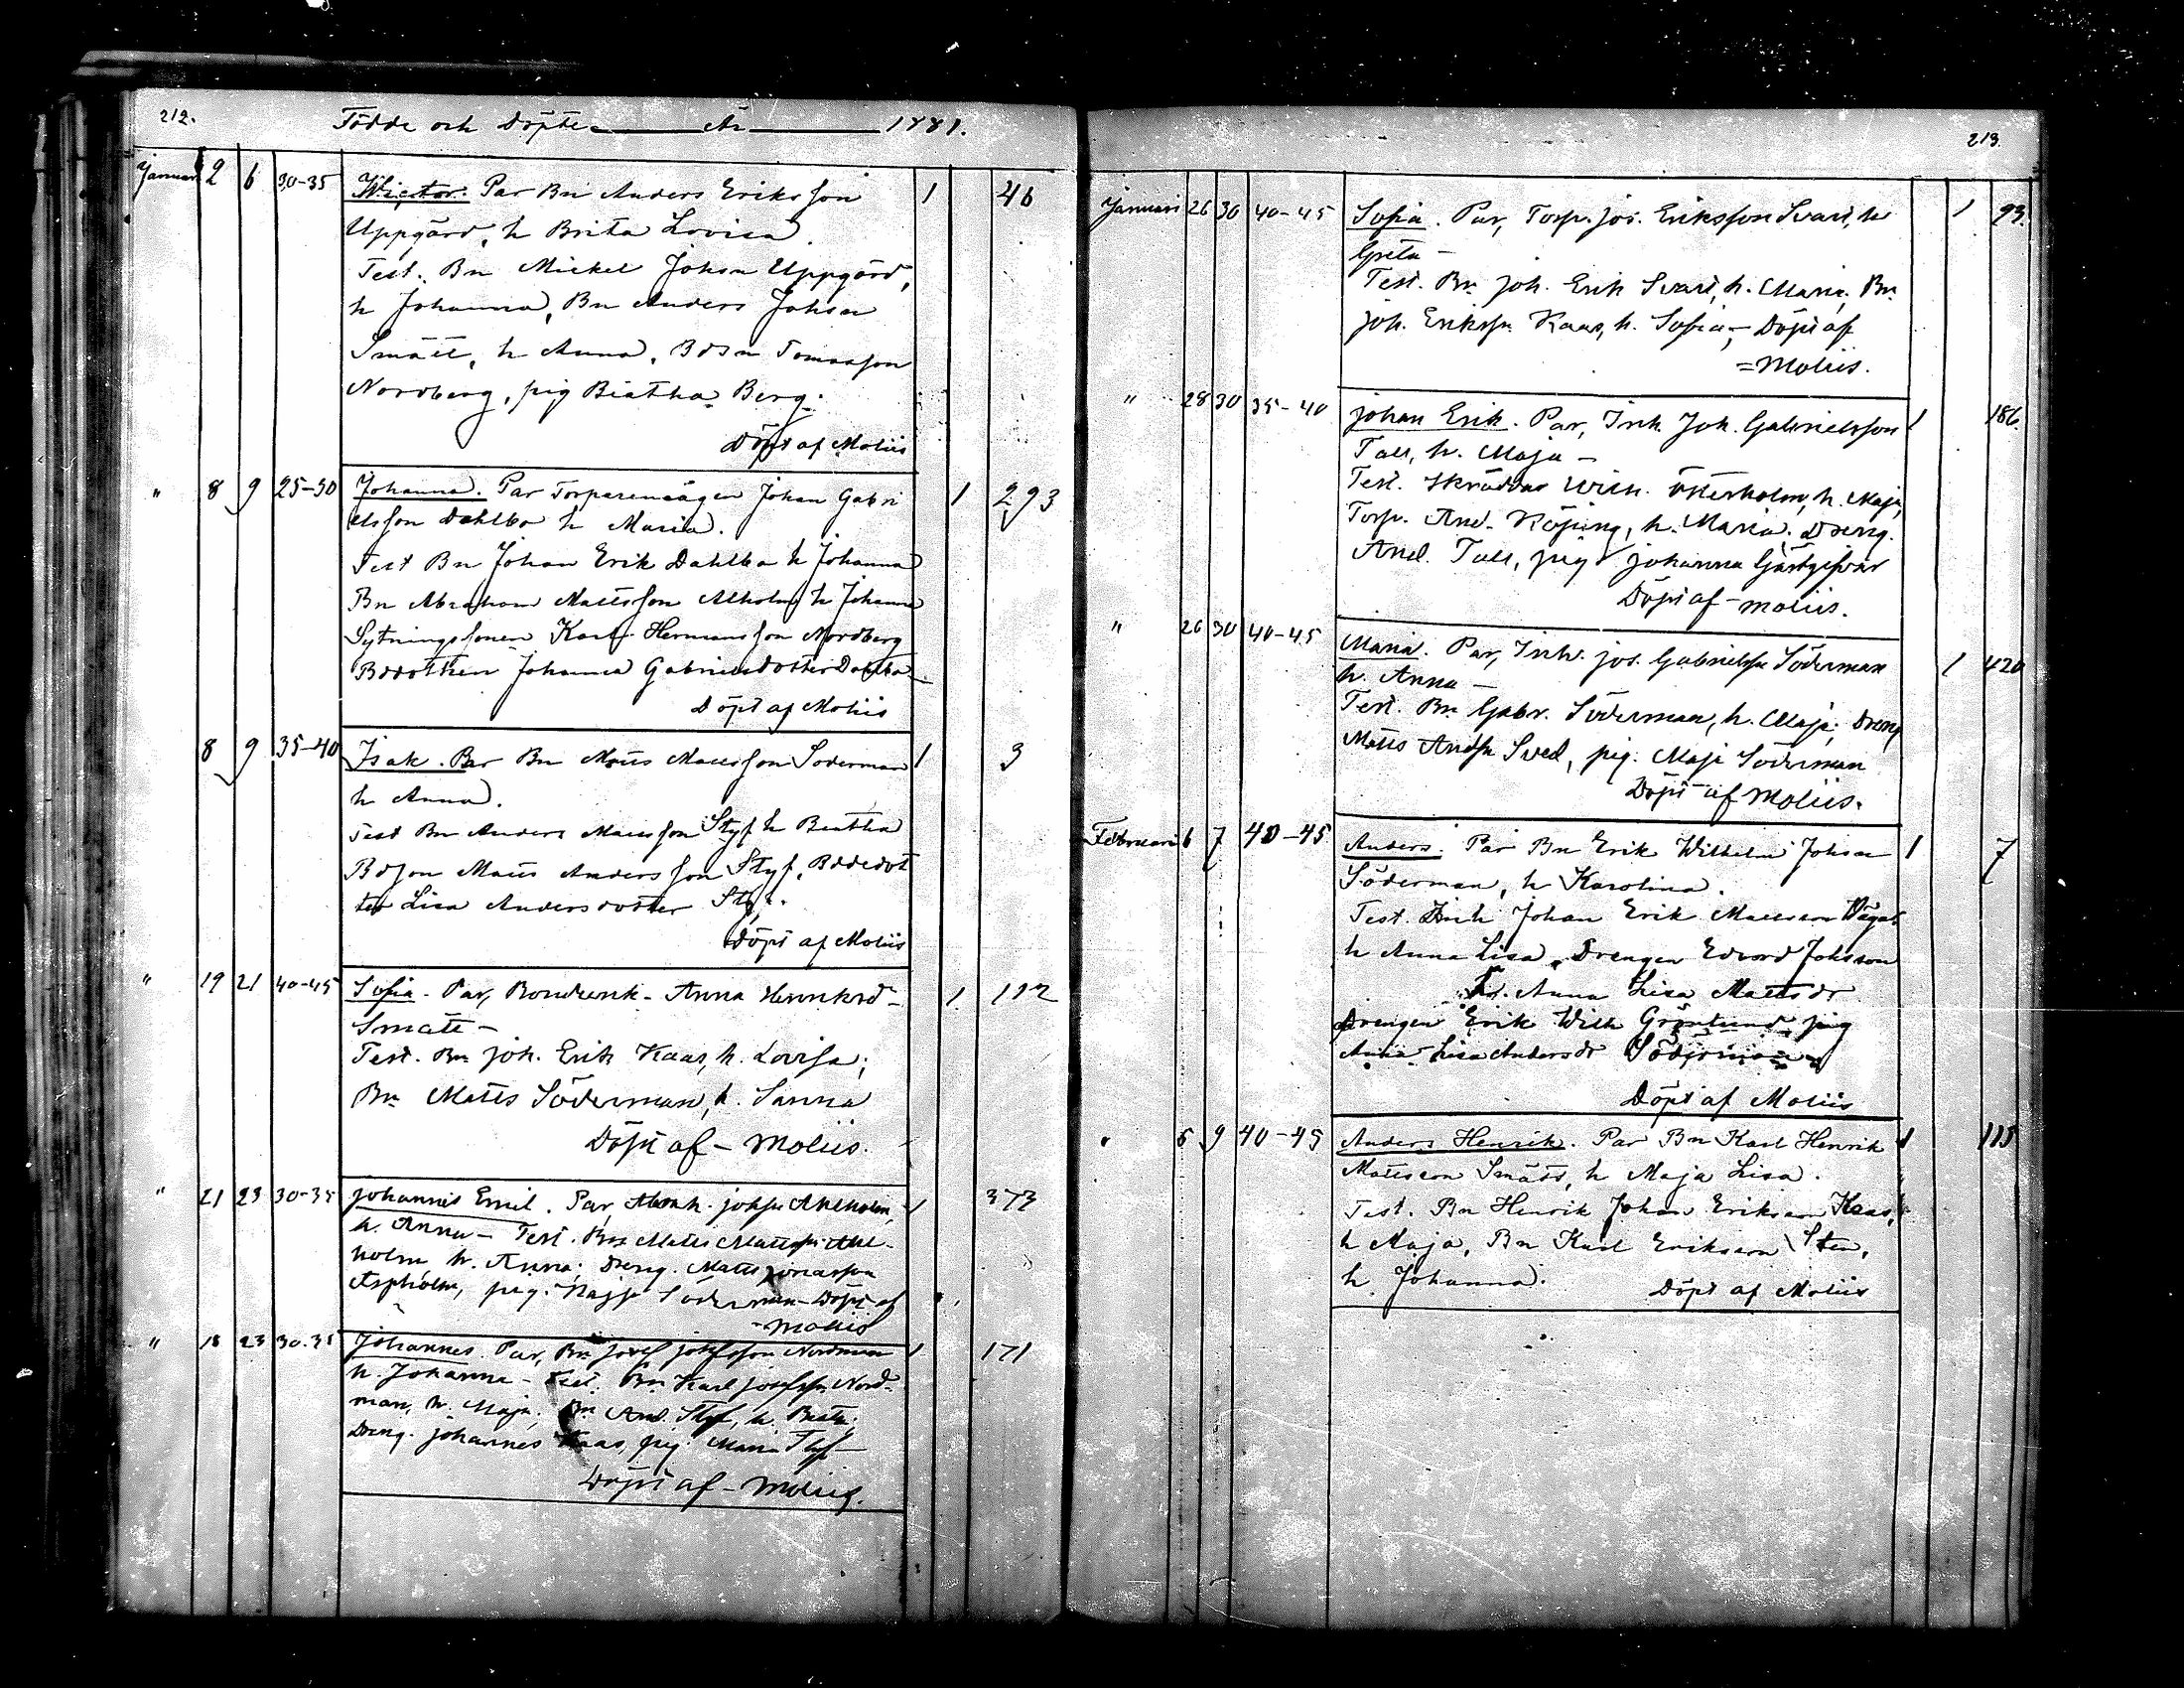 212.
Födde och Döpte År 1881.
Januari 2 6 30-35 Wictor. Par Bn Anders Eriksson 1 46
Uppgård, h Brita Lovisa.
Test. Bn Mickel Johsn Uppgård,
h Johanna, Bn Anders Johsn
Smått, h Anna, Bdsn Tomasson
Nordberg, pig Beatha Berg.
Döpt af Moliis
" 8 9 25-30 Johanna. Par Torparemågen Johan Gabri 1 293
elsson Dahlbo h Maria.
Test Bn Johan Erik Dahlbo h Johanna
Bn Abraham Mattsson Alholm h Johanna
Sytningssonen Karl Hermansson Nordberg
Bdotthen Johanna Gabrielsdotter Dahlbo
Döpt af Moliis
8 9 35-40 Isak. Par Bn Matts Mattsson Söderman 1 3
h Anna.
Test Bn Anders Mattsson Styf h Beatha
Bdson Matts Andersson Styf, Bdedot
ter Lisa Andersdotter Styf.
Döpt af Moliis
" 19 21 40-45 Sofia. Par, Bondeenk. Anna Henriksd- 1 112
Smått -
Test. Bn Joh. Erik Kaas, h. Lovisa;
Bn Matts Söderman, h. Sanna
Döpt af - Moliis.
" 21 23 30-35 Johannes Emil. Par, Abrah. Johsn Ahlholm, 1 373
h. Anna - Test. Bn Matts Mattssn Ahl-
holm h. Anna; Dreng. Matts Jonasson
Aspholm, pig. Kajsa Söderman - Döpt af
- Moliis
" 18 23 30-35 Johannes. Par, Bn Josef Josefsson Nordman 1 171
h. Johanna - Test. Bn Karl Josefssn Nord-
man, h. Maja; Bn And. Styf, h. Beata;
Dreng. Johannes Kaas, pig. Maria Styf -
Döpt af - Moliis.
213.
Januari 26 30 40-45 Sofia. Par, Torp. Jos. Eriksson Svart, h 1 93.
Greta -
Test. Bn Joh. Erik Svart, h. Maria; Bn
Joh. Erikssn Kaas, h. Sofia, - Döpt af
= Moliis.
" 28 30 35-40 Johan Erik. Par, Inh. Joh. Gabrielsson 1 186.
Tall, h. Maja -
Test. Skräddar Wilh. Österholm, h. Maja,
Torp. And. Köping, h. Maria; Dreng.
And. Tall, pig Johanna Gästgifvar
Döpt af - Moliis.
" 26 30 40-45 Maria. Par, Inh. Jos. Gabrielssn Söderman 1 420
h. Anna -
Test. Bn Gabr. Söderman, h. Maja; Dreng
Matts Andsn Sved, pig. Maja Söderman
Döpt af Moliis.
Februari 6 7 40-45 Anders. Par Bn Erik Wilhelm Johsn 1 7
Söderman, h Karolina.
Test. Inh Johan Erik Mattsson
h Anna Lisa, Drengen Edvard Johsson
Anna Lisa Mattsdr
Drengen Erik Wilh Grönlund, pig
Anna Lisa Andersdr Söderman
Döpt af Moliis
" 6 9 40-45 Anders Henrik. Par Bn Karl Henrik 1 115
Mattsson Smått, h Maja Lisa.
Test. Bn Henrik Johan Eriksson Kaas,
h Maja, Bn Karl Eriksson Sten,
h. Johanna. Döpt af Moliis